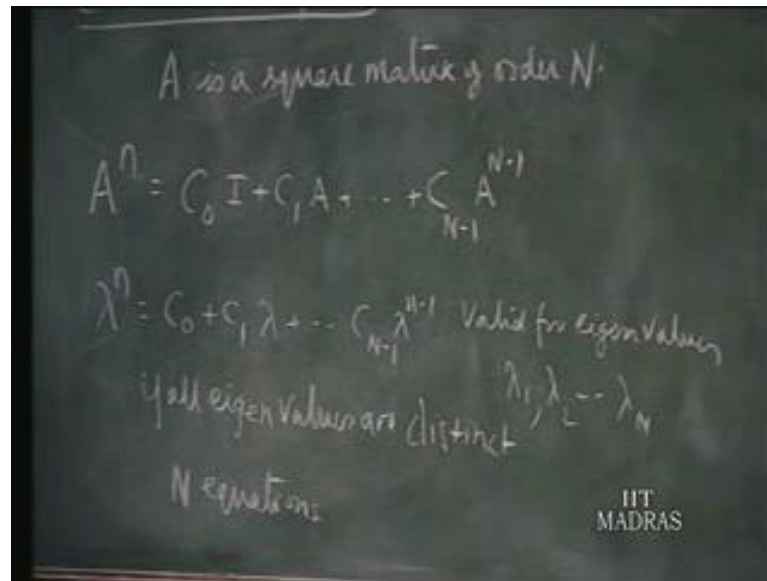 A is a square matrix of order N.
Aⁿ = C₀ I + C₁ A + ··· + C_{N-1} A^{N-1}
λⁿ = C₀ + C₁ λ + ··· C_{N-1} λ^{n-1} Valid for eigen values
if all eigen values are distinct λ₁, λ₂ --- λ_N
N equations
IIT
MADRAS